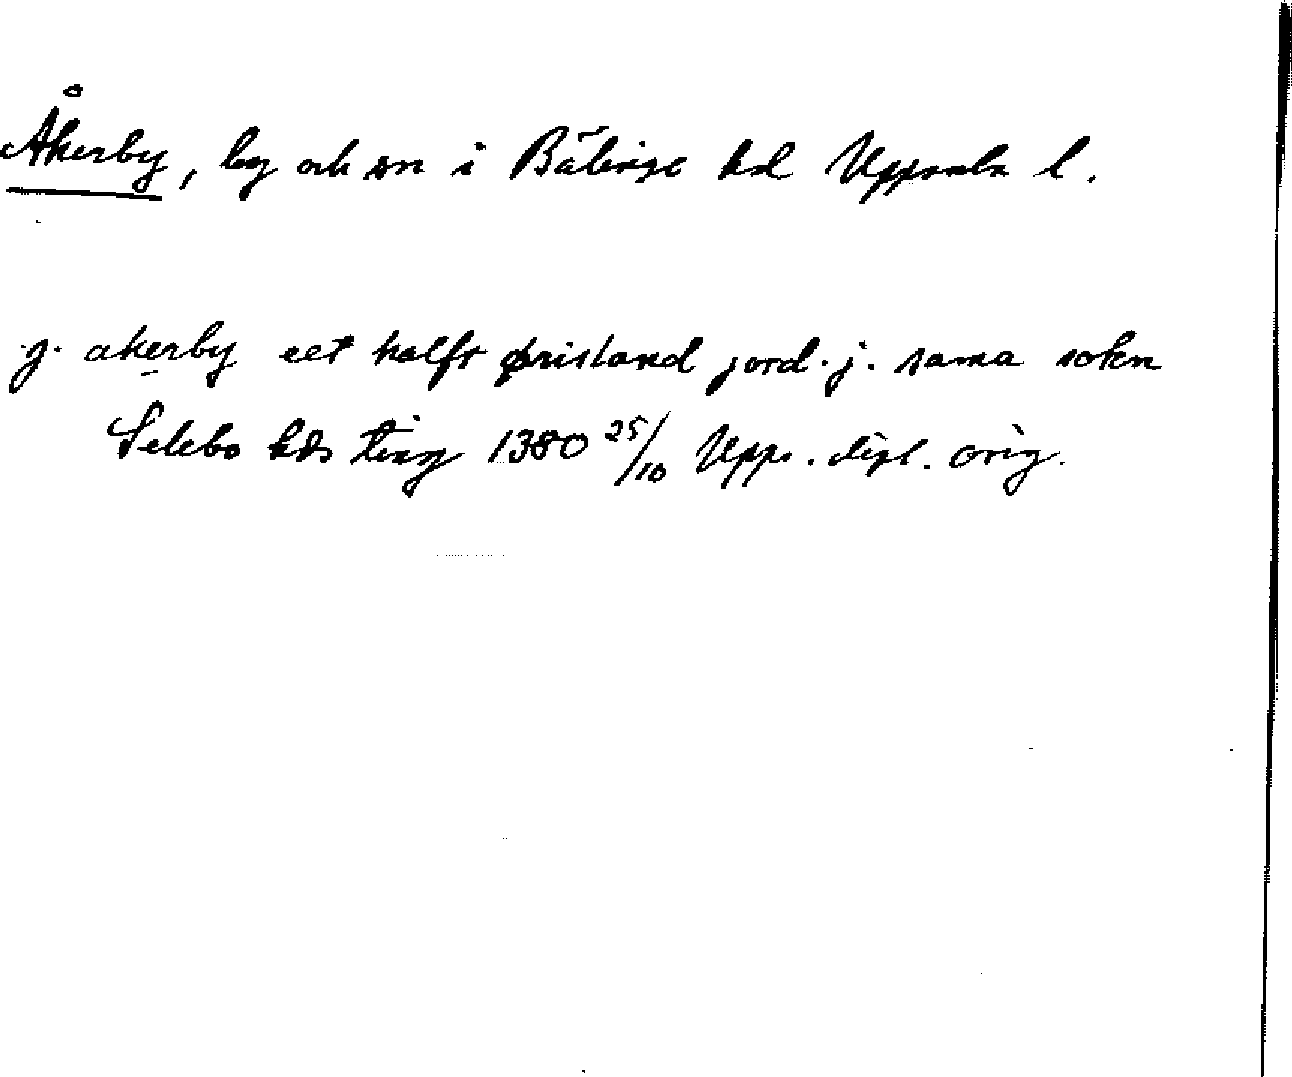 Åkerby, by och sn i Bälinge hd Uppsala l.
.j. akerby eet halft ørisland jord .j. sama sokn
Selebo hds ting 1380 25/10 Upps. dipl. orig.